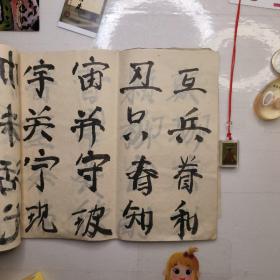 互兵眷和
丑只春知
宙并守玻
宇关宁现